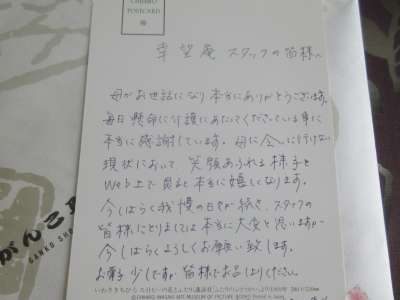 CHIHIRO
POSTCARD
幸望庵 スタッフの皆様へ
母がお世話になり本当にありがとうございます。
毎日懸命に介護にあたってくださっている事に
本当に感謝しています。母に会いに行けない
現状において 笑顔あふれる様子を
Web上で見ると本当に嬉しくなります。
今しばらく我慢の日々が続き、スタッフの
皆様にとりましては本当に大変と思いますが
今しばらくよろしくお願い致します。
お菓子 少しですが 皆様でお召し上りください。
いわさきちひろ
がんこ
GANKO